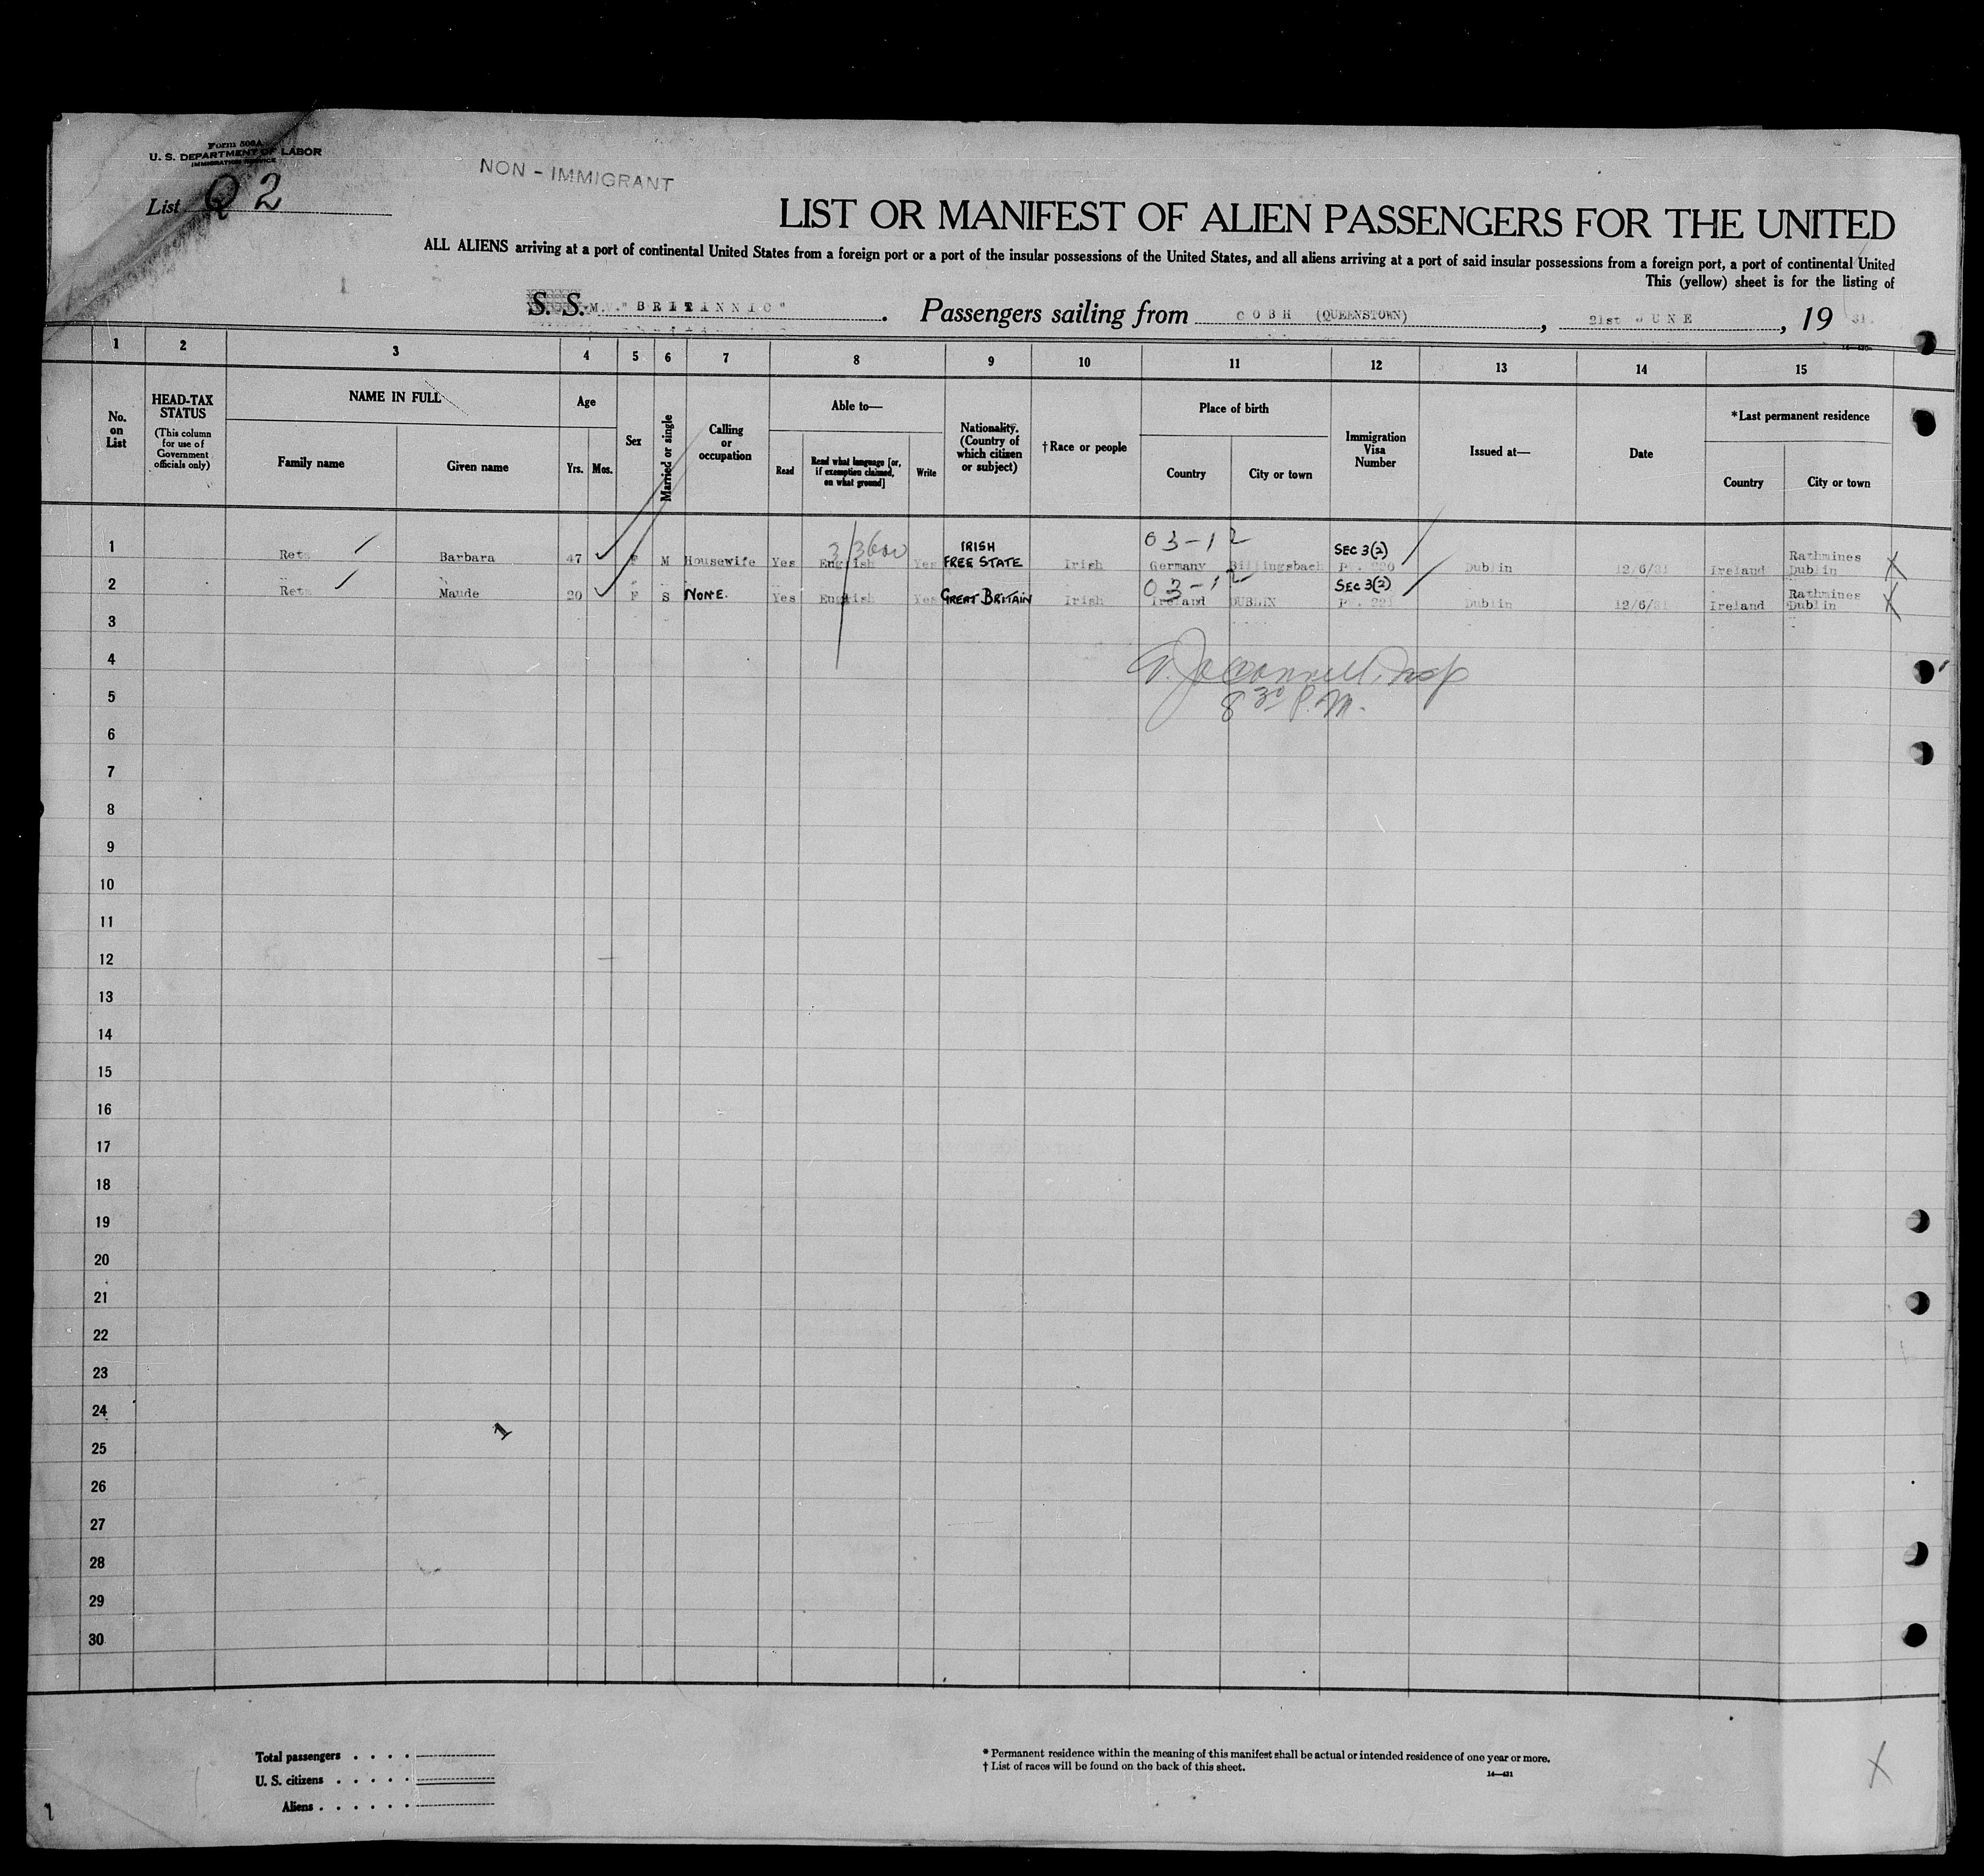 Form 500A
U. S. DEPARTMENT OF LABOR
IMMIGRATION SERVICE
NON - IMMIGRANT
List Q 2
LIST OR MANIFEST OF ALIEN PASSENGERS FOR THE UNITED
ALL ALIENS arriving at a port of continental United States from a foreign port or a port of the insular possessions of the United States, and all aliens arriving at a port of said insular possessions from a foreign port, a port of continental United
This (yellow) sheet is for the listing of
S. S. M.V. "BRITANNIC" . Passengers sailing from COBH (QUEENSTOWN) , 21st JUNE , 19 31.
1 2 3 4 5 6 7 8 9 10 11 12 13 14 15
No. on List
HEAD-TAX STATUS
(This column for use of Government officials only)
NAME IN FULL
Family name Given name
Age
Yrs. Mos.
Sex
Married or single
Calling or occupation
Able to—
Read
Read what language [or, if exemption claimed, on what ground]
Write
Nationality. (Country of which citizen or subject)
†Race or people
Place of birth
Country City or town
Immigration Visa Number
Issued at—
Date
*Last permanent residence
Country City or town
03-12
1 Barbara 47 F M Housewife Yes English Yes IRISH FREE STATE Irish Germany Billingsbach SEC 3(2) Dublin 12/6/31 Ireland Rathmines Dublin X
03-12
2 Maude 20 F S NONE. Yes English Yes GREAT BRITAIN Irish Ireland DUBLIN SEC 3(2) Dublin 12/6/31 Ireland Rathmines Dublin X
3
4
5
8 30 P.M.
6
7
8
9
10
11
12
13
14
15
16
17
18
19
20
21
22
23
24
1
25
26
27
28
29
30
Total passengers . . . .
U. S. citizens . . . . .
Aliens . . . . . .
* Permanent residence within the meaning of this manifest shall be actual or intended residence of one year or more.
† List of races will be found on the back of this sheet.
14—431
X